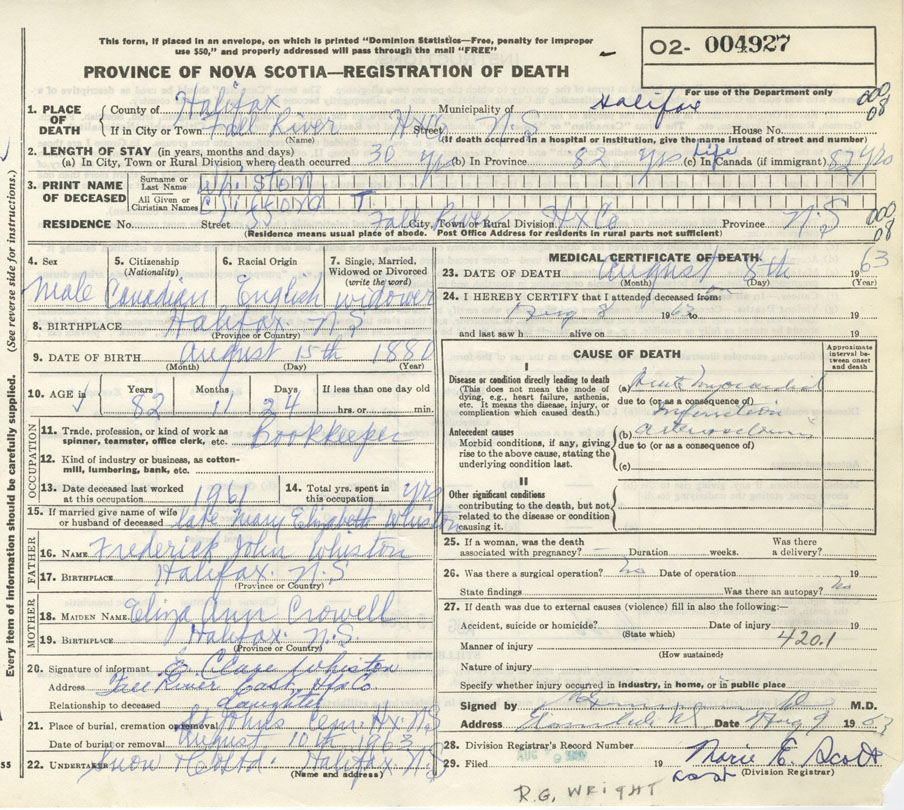 This form, if placed in an envelope, on which is printed "Dominion Statistics—Free, penalty for improper
use $50," and properly addressed will pass through the mail "FREE"
02- 004927
PROVINCE OF NOVA SCOTIA—REGISTRATION OF DEATH
For use of the Department only
1. PLACE OF DEATH
County of Halifax Municipality of Halifax
If in City or Town Fall River Hx Co Street N.S House No.
(Name) (If death occurred in a hospital or institution, give the name instead of street and number)
000
08
2. LENGTH OF STAY (in years, months and days)
(a) In City, Town or Rural Division where death occurred 30 yrs (b) In Province 82 yrs (c) In Canada (if immigrant) life 82 yrs
3. PRINT NAME OF DECEASED
Surname or Last Name Whiston
All Given or Christian Names Clifford T.
RESIDENCE No. Street Fall River City, Town or Rural Division Hx Co Province N.S
(Residence means usual place of abode. Post Office Address for residents in rural parts not sufficient)
000
08
4. Sex Male
5. Citizenship (Nationality) Canadian
6. Racial Origin English
7. Single, Married, Widowed or Divorced (write the word) widower
8. BIRTHPLACE Halifax N.S
(Province or Country)
9. DATE OF BIRTH August 15th 1880
(Month) (Day) (Year)
10. AGE in Years 82 Months 11 Days 24 If less than one day old hrs. or min.
OCCUPATION
11. Trade, profession, or kind of work as spinner, teamster, office clerk, etc. Bookkeeper
12. Kind of industry or business, as cotton-mill, lumbering, bank, etc.
13. Date deceased last worked at this occupation 1961
14. Total yrs. spent in this occupation yrs
15. If married give name of wife or husband of deceased late Mary Elizabeth Whiston
FATHER
16. NAME Frederick John Whiston
17. BIRTHPLACE Halifax N.S
(Province or Country)
MOTHER
18. MAIDEN NAME Eliza Ann Crowell
19. BIRTHPLACE Halifax N.S
(Province or Country)
20. Signature of informant E. Clare Whiston
Address Fall River East, Hx Co
Relationship to deceased daughter
21. Place of burial, cremation or removal Cem. Hx. N.S
Date of burial or removal August 10th 1963
22. UNDERTAKER Snow & Co Ltd. Halifax N.S
(Name and address)
MEDICAL CERTIFICATE OF DEATH
23. DATE OF DEATH August 8th 1963
(Month) (Day) (Year)
24. I HEREBY CERTIFY that I attended deceased from: on
Aug 8 1963 to 19
and last saw h alive on 19
CAUSE OF DEATH
Approximate interval between onset and death
I
Disease or condition directly leading to death
(This does not mean the mode of dying, e.g., heart failure, asthenia, etc. It means the disease, injury, or complication which caused death.)
(a) Acute Myocardial
due to (or as a consequence of)
Infarction
Antecedent causes
Morbid conditions, if any, giving rise to the above cause, stating the underlying condition last.
(b) Arteriosclerosis
due to (or as a consequence of)
(c)
II
Other significant conditions
contributing to the death, but not related to the disease or condition causing it.
25. If a woman, was the death associated with pregnancy? Duration weeks. Was there a delivery?
26. Was there a surgical operation? No Date of operation 19
State findings Was there an autopsy? No
27. If death was due to external causes (violence) fill in also the following:—
Accident, suicide or homicide? Date of injury 19
(State which)
Manner of injury 420.1
(How sustained)
Nature of injury
Specify whether injury occurred in industry, in home, or in public place
Signed by M.D.
Address Date Aug 9 1963
28. Division Registrar's Record Number
29. Filed AUG 9 19 Marie E. Scott
(Division Registrar)
R.G. WRIGHT
Every item of information should be carefully supplied. (See reverse side for instructions.)
55